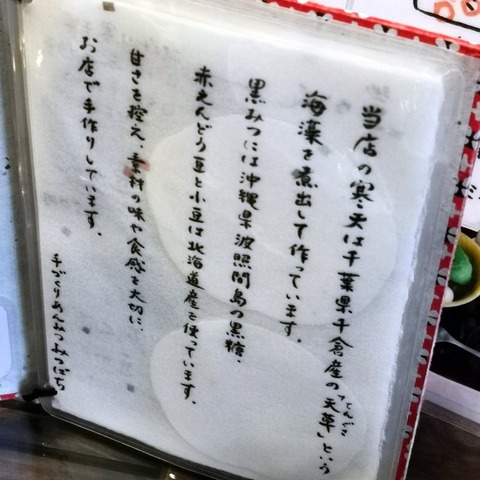 当店の寒天は千葉県千倉産の「天草」という
てんぐさ
海藻を煮出して作っています。
黒みつには沖縄県波照間島の黒糖、
赤えんどう豆と小豆は北海道産を使っています。
甘さを控え、素材の味や食感を大切に、
お店で手作りしています。
手づくりあんみつみつばち